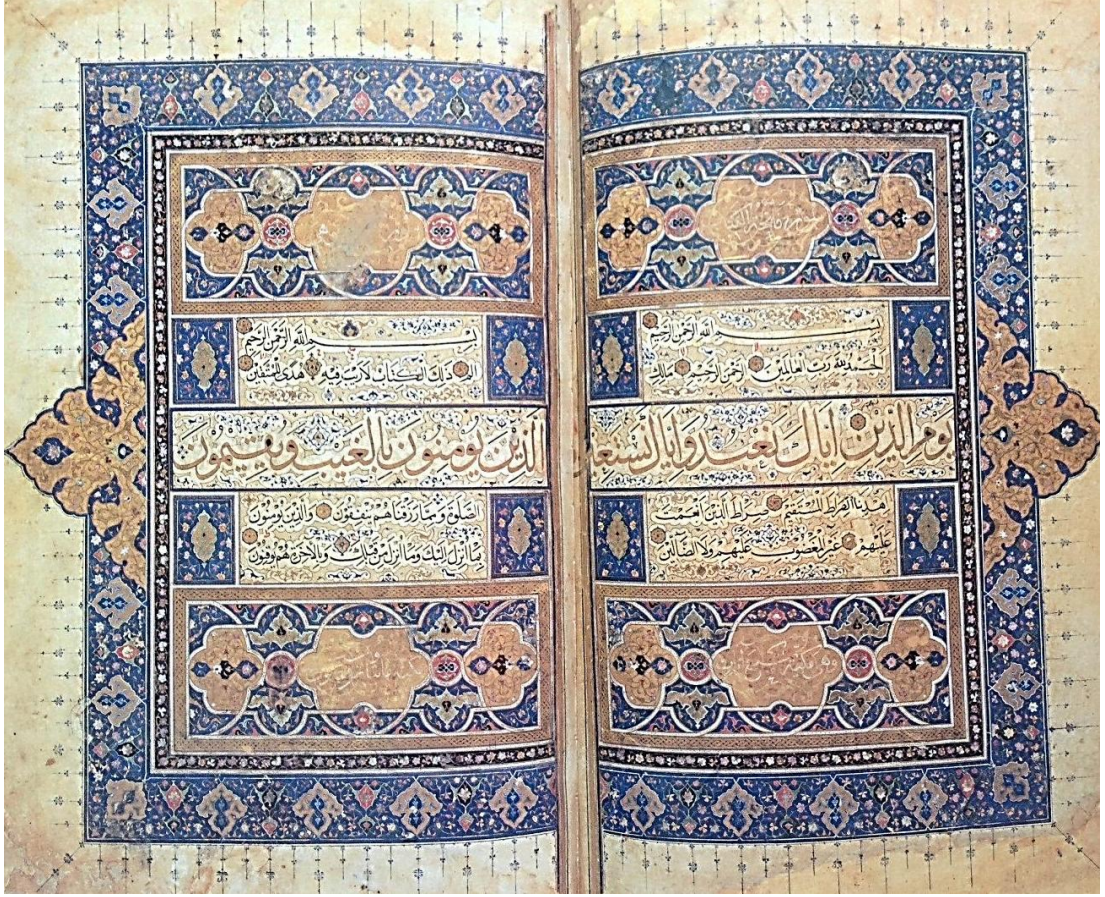 سورة فاتحة الكتاب
بسم الله الرحمن الرحيم
الحمد لله رب العالمين الرحمن الرحيم مالك
يوم الدين اياك نعبد واياك نستعين
اهدنا الصراط المستقيم صراط الذين انعمت
عليهم غير المغضوب عليهم ولا الضالين
بسم الله الرحمن الرحيم
الم ذلك الكتاب لا ريب فيه هدى للمتقين
الذين يومنون بالغيب ويقيمون
الصلوة ومما رزقناهم ينفقون والذين يومنون
بما انزل اليك وما انزل من قبلك وبالاخرة هم يوقنون